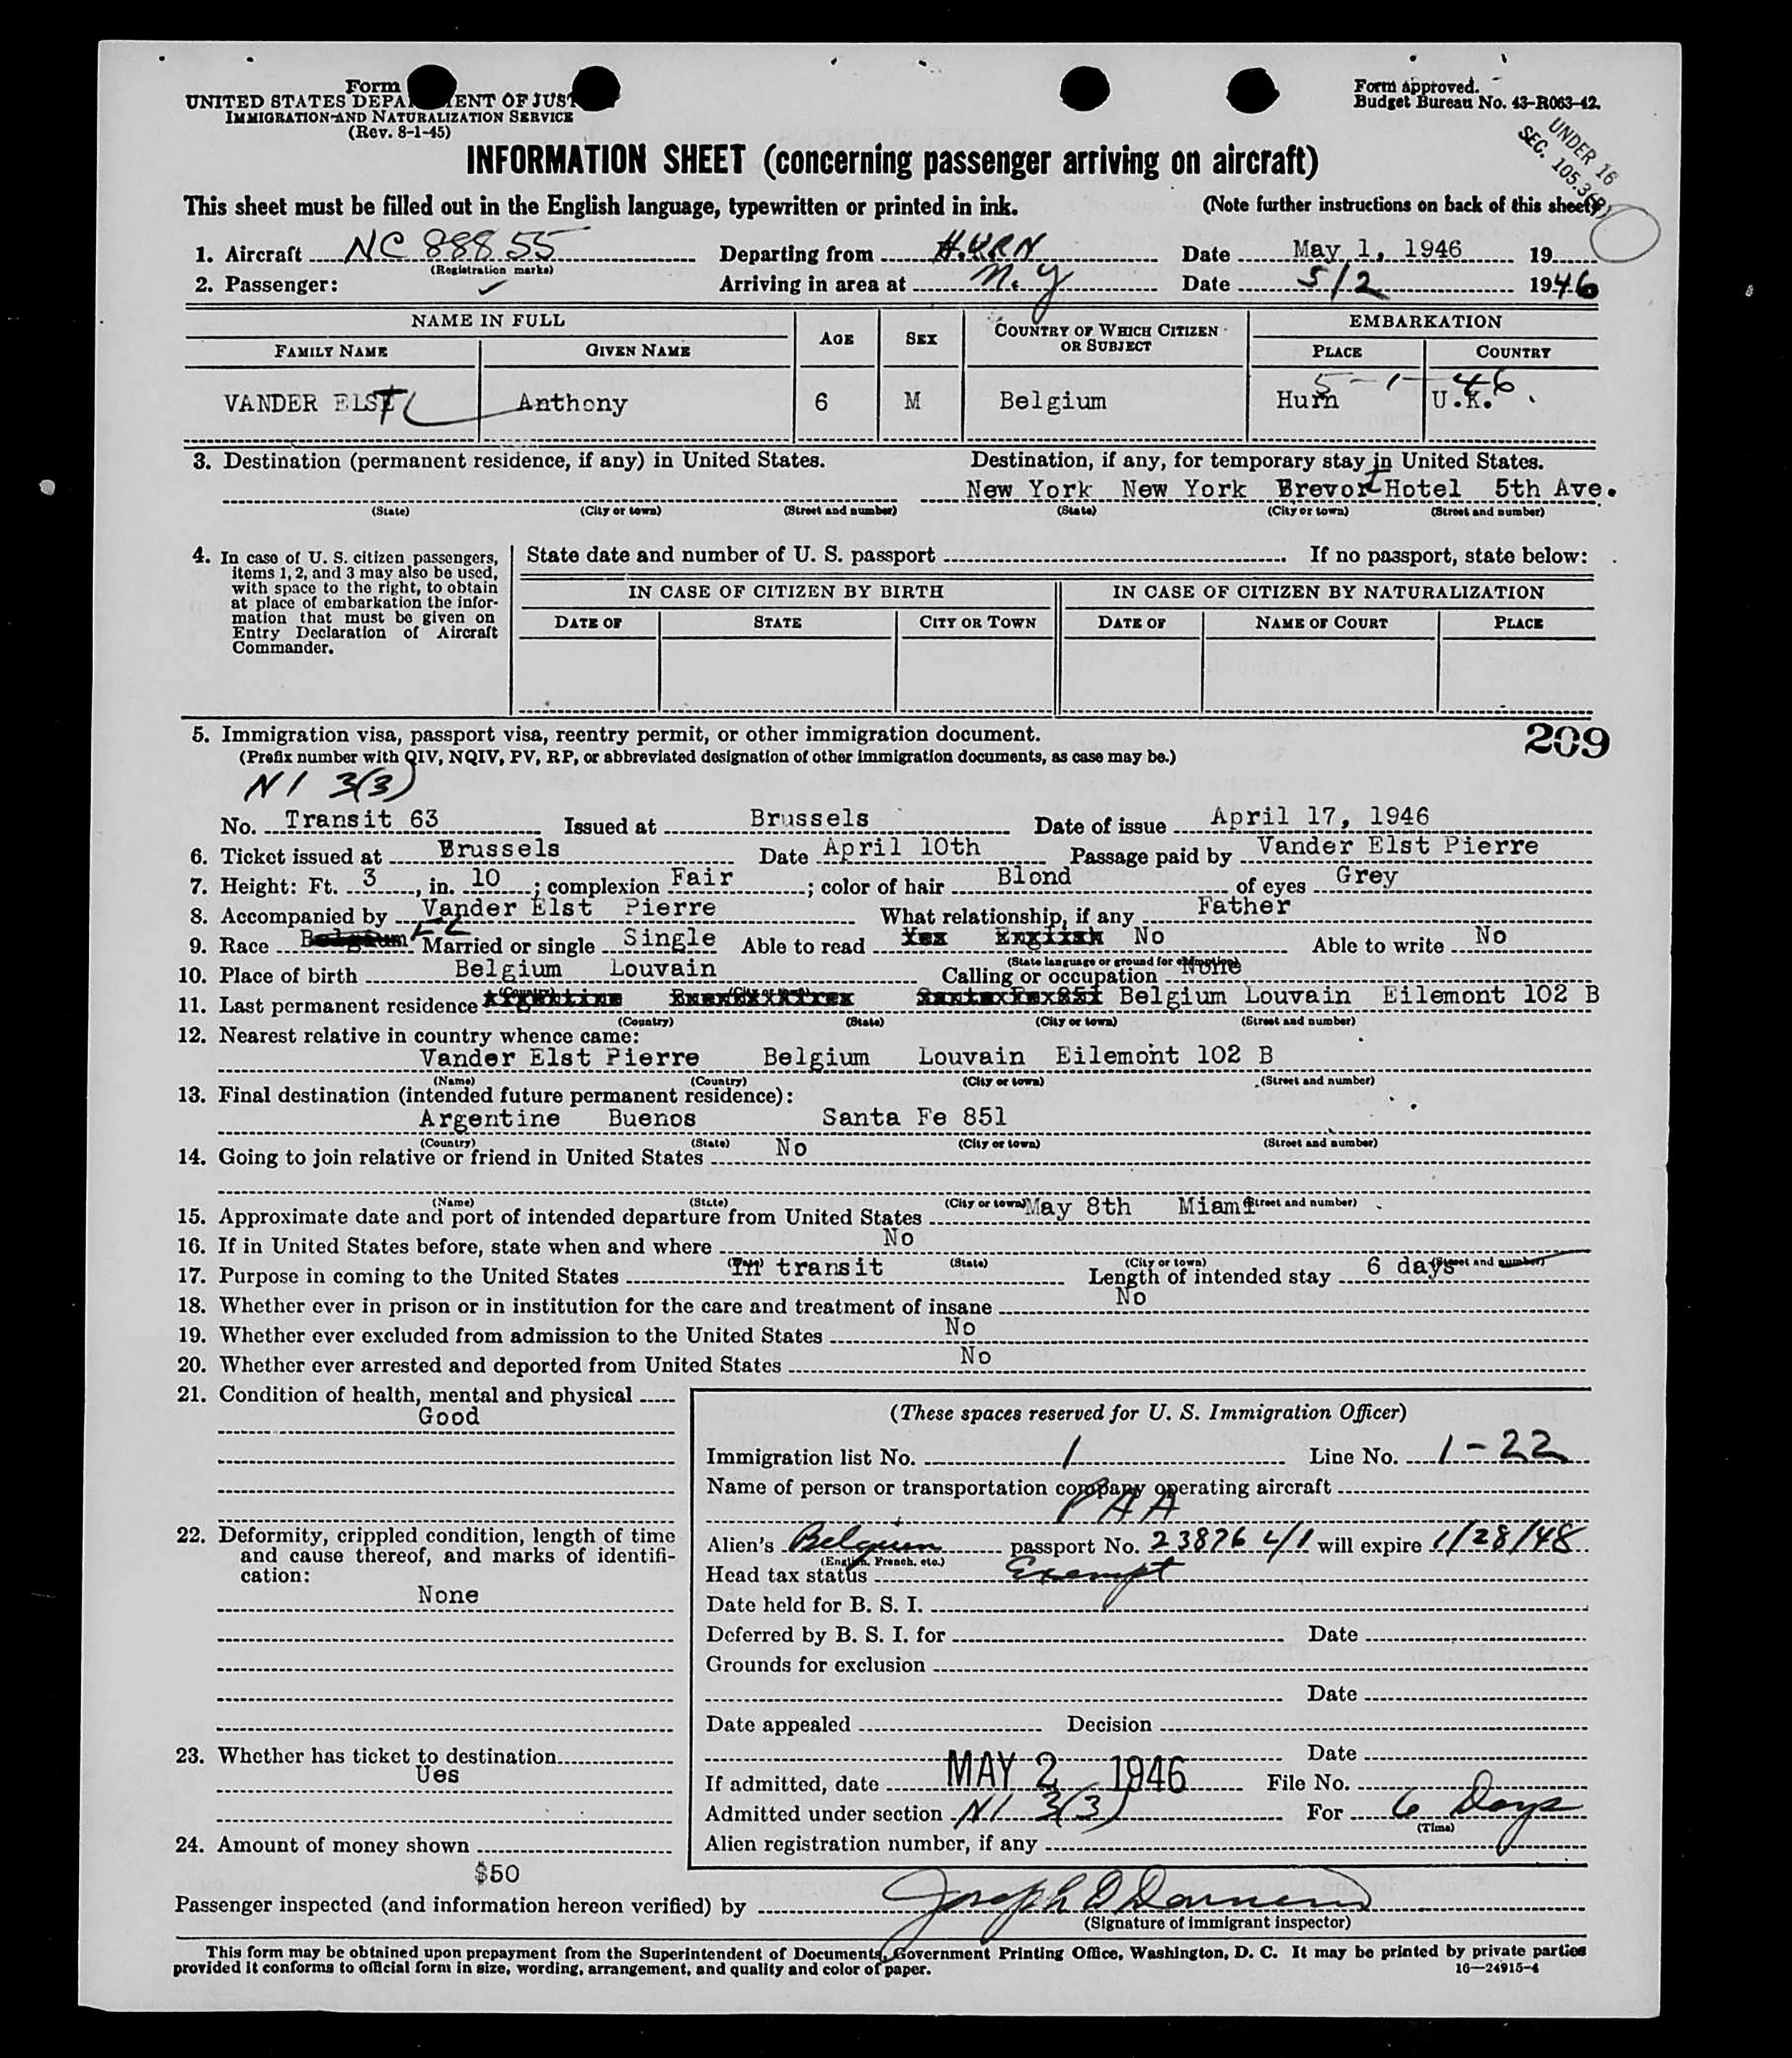 Form
UNITED STATES DEPA ENT OF JUST
IMMIGRATION AND NATURALIZATION SERVICE
(Rev. 8-1-45)
Form approved.
Budget Bureau No. 43-R063-42.
UNDER 16
SEC. 105.3
INFORMATION SHEET (concerning passenger arriving on aircraft)
This sheet must be filled out in the English language, typewritten or printed in ink. (Note further instructions on back of this sheet)
1. Aircraft NC 88855 Departing from HURN Date May 1, 1946 19
(Registration marks)
2. Passenger: Arriving in area at N.Y Date 5/2 1946
NAME IN FULL AGE SEX COUNTRY OF WHICH CITIZEN OR SUBJECT EMBARKATION
FAMILY NAME GIVEN NAME PLACE COUNTRY
5-1-46
VANDER ELST Anthony 6 M Belgium Hurn U.K.
3. Destination (permanent residence, if any) in United States. Destination, if any, for temporary stay in United States.
New York New York Brevort Hotel 5th Ave.
(State) (City or town) (Street and number) (State) (City or town) (Street and number)
4. In case of U. S. citizen passengers, items 1, 2, and 3 may also be used, with space to the right, to obtain at place of embarkation the information that must be given on Entry Declaration of Aircraft Commander.
State date and number of U. S. passport . If no passport, state below:
IN CASE OF CITIZEN BY BIRTH IN CASE OF CITIZEN BY NATURALIZATION
DATE OF STATE CITY OR TOWN DATE OF NAME OF COURT PLACE
5. Immigration visa, passport visa, reentry permit, or other immigration document. 209
(Prefix number with QIV, NQIV, PV, RP, or abbreviated designation of other immigration documents, as case may be.)
NI 3(3)
No. Transit 63 Issued at Brussels Date of issue April 17, 1946
6. Ticket issued at Brussels Date April 10th Passage paid by Vander Elst Pierre
7. Height: Ft. 3, in. 10; complexion Fair; color of hair Blond of eyes Grey
8. Accompanied by Vander Elst Pierre What relationship, if any Father
9. Race Belgium Married or single Single Able to read Yes English No Able to write No
(State language or ground for exemption)
10. Place of birth Belgium Louvain Calling or occupation None
(Country) (City or town)
11. Last permanent residence Argentine Santa Fex851 Belgium Louvain Eilemont 102 B
(Country) (State) (City or town) (Street and number)
12. Nearest relative in country whence came:
Vander Elst Pierre Belgium Louvain Eilemont 102 B
(Name) (Country) (City or town) (Street and number)
13. Final destination (intended future permanent residence):
Argentine Buenos Santa Fe 851
(Country) (State) (City or town) (Street and number)
14. Going to join relative or friend in United States No
(Name) (State) (City or town) (Street and number)
15. Approximate date and port of intended departure from United States May 8th Miami
16. If in United States before, state when and where No
(State) (City or town) (Street and number)
17. Purpose in coming to the United States In transit Length of intended stay 6 days
18. Whether ever in prison or in institution for the care and treatment of insane No
19. Whether ever excluded from admission to the United States No
20. Whether ever arrested and deported from United States No
21. Condition of health, mental and physical
Good
22. Deformity, crippled condition, length of time and cause thereof, and marks of identification:
None
23. Whether has ticket to destination
Ues
24. Amount of money shown
$50
(These spaces reserved for U. S. Immigration Officer)
Immigration list No. 1 Line No. 1-22
Name of person or transportation company operating aircraft
PAA
Alien's Belgium passport No. 23876 4/1 will expire 1/28/48
(English, French, etc.)
Head tax status Exempt
Date held for B. S. I.
Deferred by B. S. I. for Date
Grounds for exclusion
Date
Date appealed Decision
Date
If admitted, date MAY 2 1946 File No.
Admitted under section NI 3(3) For 6 Days
(Time)
Alien registration number, if any
Passenger inspected (and information hereon verified) by Joseph D
(Signature of immigrant inspector)
This form may be obtained upon prepayment from the Superintendent of Documents, Government Printing Office, Washington, D. C. It may be printed by private parties
provided it conforms to official form in size, wording, arrangement, and quality and color of paper. 16—24915-4